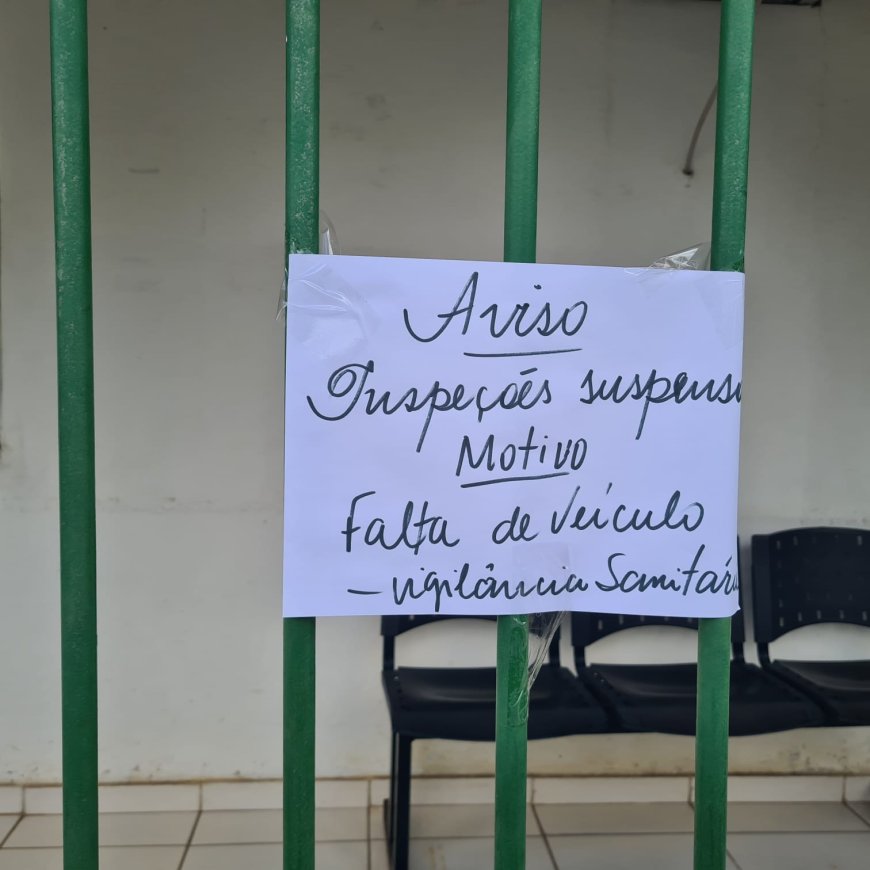 Aviso
Inspeções suspens
Motivo
Falta de Veículo
- Vigilância Sanitári